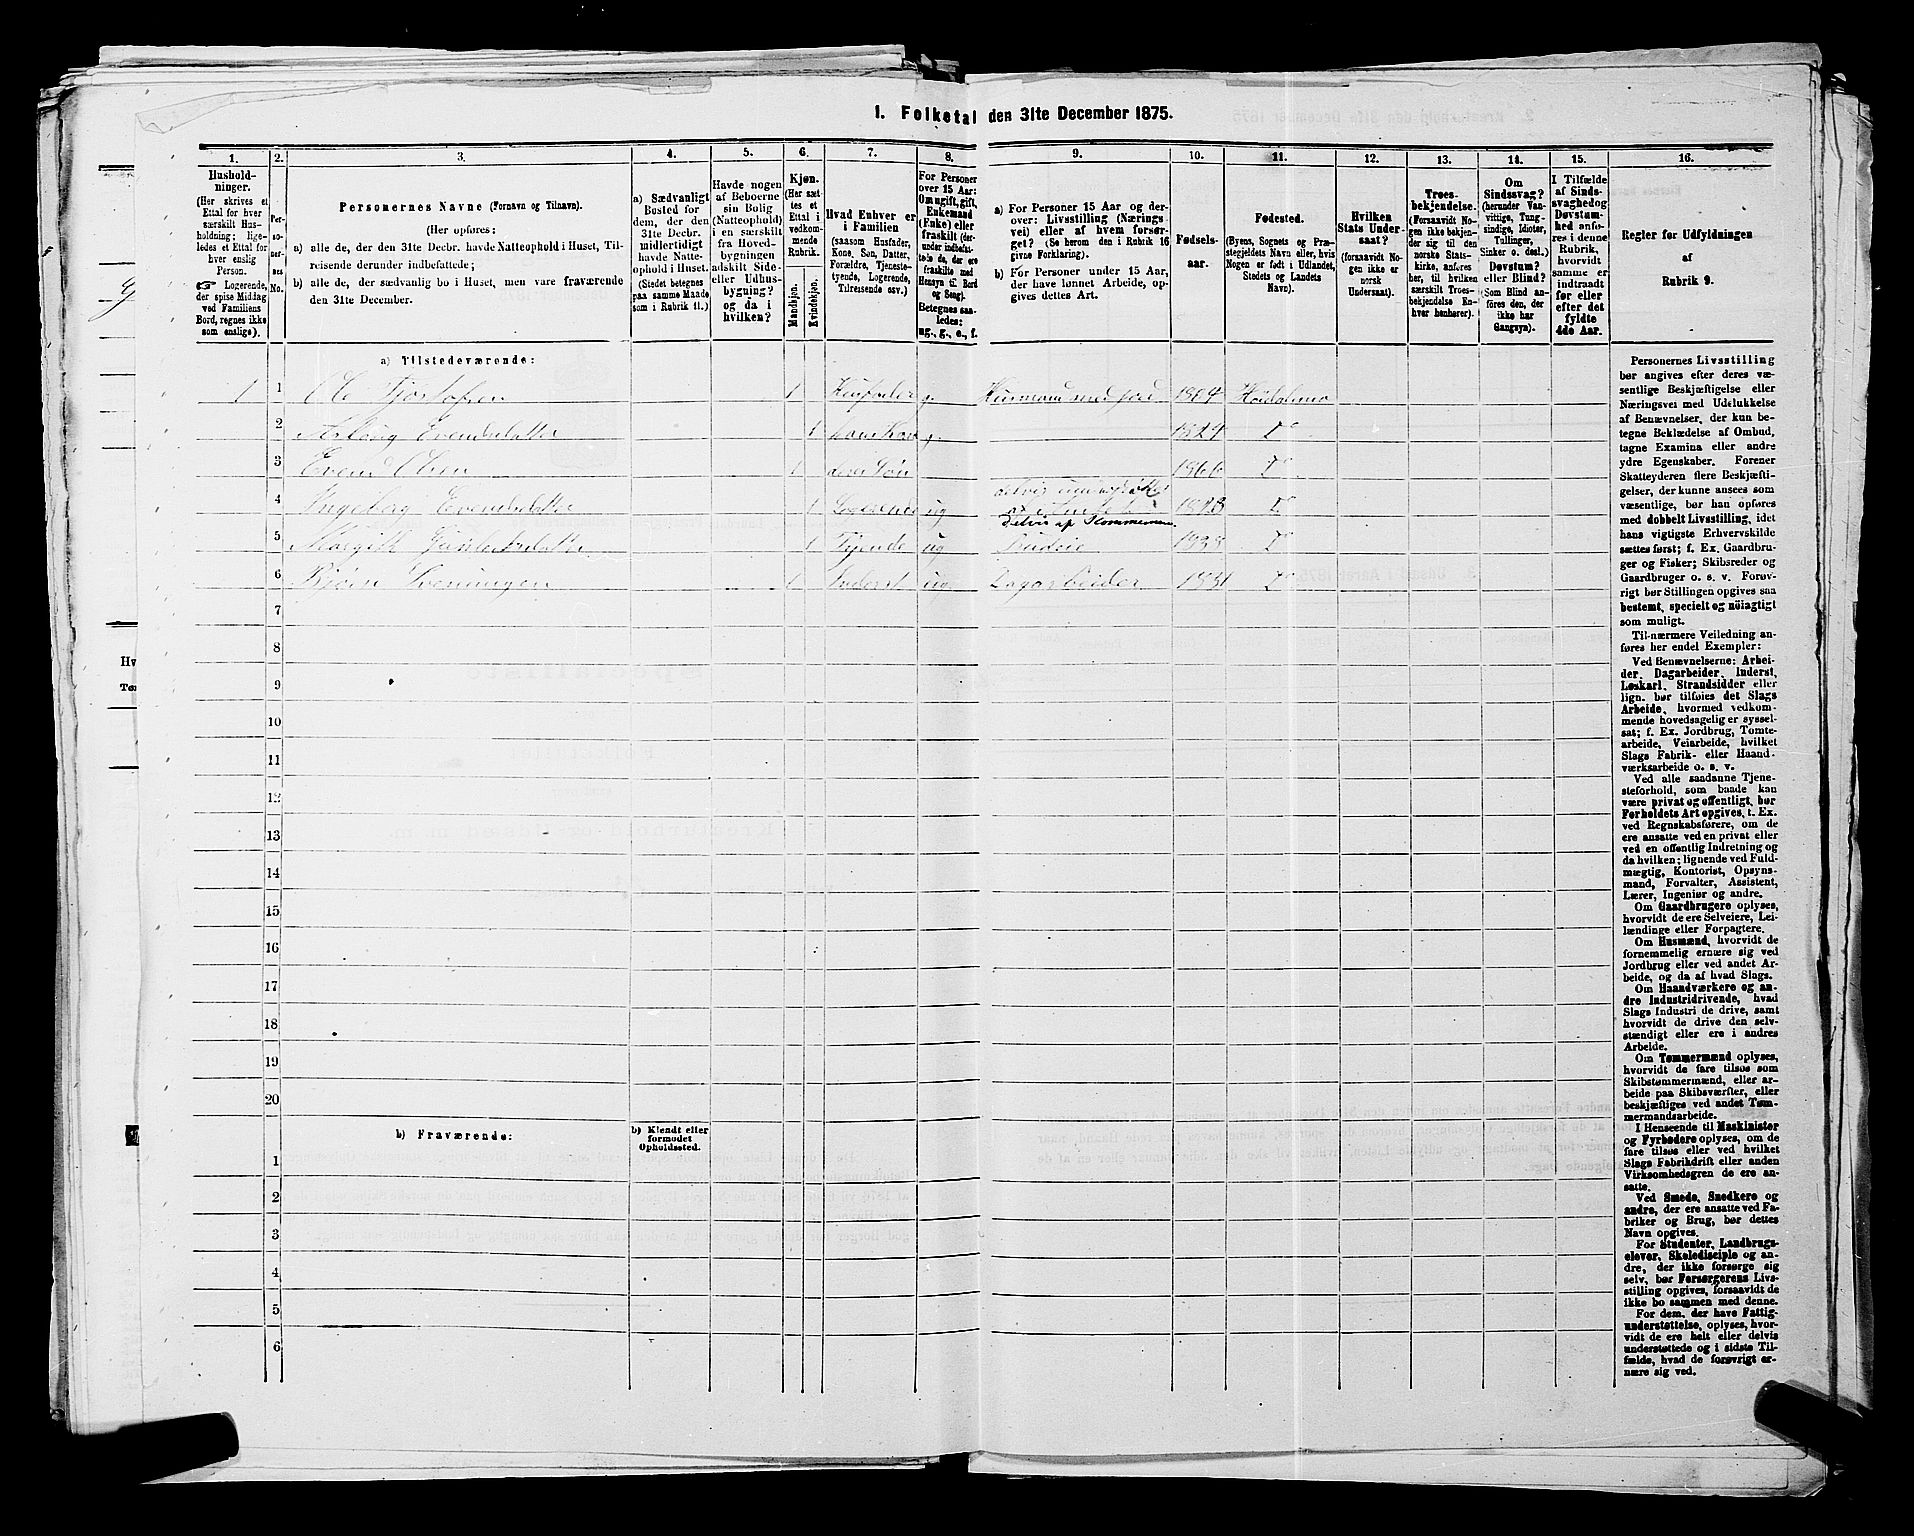 1. Folketal den 31te December 1875.
1. 2. 3. 4. 5. 6. 7. 8. 9. 10. 11. 12. 13. 14. 15. 16.
Husholdninger.
(Her skrives et
Ettal for hver
særskilt Husholdning;
ligeledes et Ettal for
hver enslig
Person.
☞ Logerende,
der spise Middag
ved Familiens
Bord, regnes ikke
som enslige).
Personernes No.
Personernes Navne (Fornavn og Tilnavn).
(Her opføres:
a) alle de, der den 31te Decbr. havde Natteophold i Huset, Tilreisende derunder indbefattede;
b) alle de, der sædvanlig bo i Huset, men vare fraværende
den 31te December.
a) Sædvanligt
Bosted for
dem, der den
31te Decbr.
midlertidigt
havde Natteophold i Huset.
(Stedet betegnes
paa samme Maade
som i Rubrik 11.)
Havde nogen
af Beboerne
sin Bolig
(Natteophold)
i en særskilt
fra Hovedbygningen
adskilt Side-
eller Udhusbygning?
og da i
hvilken?
Kjøn.
(Her sættes et
Ettal i
vedkommende
Rubrik.
Mandkjøn.
Kvindekjøn.
Hvad Enhver er
i Familien
(saasom Husfader,
Kone, Søn, Datter,
Forældre, Tjenestetyende,
Logerende,
Tilreisende osv.)
For Personer
over 15 Aar:
Om ugift, gift,
Enkemand
(Enke) eller
fraskilt
Betegnes saaledes:
ug., g., e., f.
a) For Personer 15 Aar og derover:
Livsstilling (Næringsvei)
eller af hvem forsørget?
(Se herom den i Rubrik 16
givne Forklaring).
b) For Personer under 15 Aar,
der have lønnet Arbeide, opgives dettes Art.
Fødselsaar.
Fødested.
(Byens, Sognets og Præstegjeldets
Navn eller, hvis
Nogen er født i Udlandet,
Stedets og Landets
Navn.)
Hvilken
Stats Undersaat?
(forsaavidt Nogen ikke er
norsk
Undersaat).
Troesbekjendelse.
(Forsaavidt Nogen ikke bekjender
sig til den
norske Statskirke, anføres
her, til hvilken
særskilt Troesbekjendelse Enhver henhører).
Om
Sindssvag?
(herunder Vanvittige,
Tungsindige, Idioter,
Tullinger,
Sinker o. desl.)
Døvstum?
eller Blind?
(Som Blind anføres den, der
ikke har
Gangsyn).
I Tilfælde
af Sindssvaghed og
Døvstumhed anføres i denne
Rubrik,
hvorvidt
samme er
indtraadt
før eller
efter det
fyldte
4de Aar.
Regler for Udfyldningen
af
Rubrik 9.
a) Tilstedeværende:
1 1 Ole Tjøstofsen 1 Husfader g. Husmand med Jord 1824 Høidalsmo
2 Aslaug Evensdatter 1 hans Kone g. 1824 Do
3 Even Olsen 1 deres Søn 1866 Do
4 Ingeborg Evensdatter 1 Logerende ug 1828 Do
Delvis af
5 Margith Gunleiksdatter 1 Tjende ug Budeie 1858 Do
6 Bjørn Sveningen 1 Inderst ug Dagarbeider 1831 Do
7
8
9
10
11
12
13
14
15
16
17
18
19
20
b) Fraværende:
b) Kjendt eller
formodet
Opholdssted.
1
2
3
4
5
6
Personernes Livsstilling
bør angives efter deres væsentlige Beskjæftigelse eller
Næringsvei med Udelukkelse
af Benævnelser, der kun betegne Beklædelse af Ombud,
tagne Examina eller andre
ydre Egenskaber. Forener
Skatteyderen flere Beskjæftigelser, der kunne ansees som
væsentlige, bør han opføres
med dobbelt Livsstilling, idet
hans vigtigste Erhvervskilde
sættes først; f. Ex. Gaardbruger og Fisker; Skibsreder og
Gaardbruger o. s. v. Forøvrigt bør Stillingen opgives saa
bestemt, specielt og nöiagtigt
som muligt.
Til nærmere Veiledning anføres her endel Exempler:
Ved Benævnelserne: Arbeider, Dagarbeider, Inderst,
Løskarl, Strandsidder eller
lign. bør tilføies det Slags
Arbeide, hvormed vedkommende hovedsagelig er sysselsat; f. Ex. Jordbrug, Tomtearbeide, Veiarbeide, hvilket
Slags Fabrik- eller Haandværksarbeide o. s. v.
Ved alle saadanne Tjenesteforhold, som baade kan
være privat og offentligt, bør
Forholdets Art opgives, t. Ex.
ved Regnskabsførere, om de
ere ansatte ved en privat eller
ved en offentlig Indretning og
da hvilken; lignende ved Fuldmægtig, Kontorist, Opsynsmand, Forvalter, Assistent,
Lærer, Ingeniør og andre.
Om Gaardbrugere oplyses,
hvorvidt de ere Selveiere, Leilændinge eller Forpagtere.
Om Husmænd, hvorvidt de
fornemmelig ernære sig ved
Jordbrug eller ved andet Arbeide, og da af hvad Slags.
Om Haandværkere og andre Industridrivende, hvad
Slags Industri de drive, samt
hvorvidt de drive den selvstændigt eller ere i andres
Arbeide.
Om Tømmermænd oplyses,
hvorvidt de fare tilsøs som
Skibstømmermænd, eller arbeide paa Skibsværfter, eller
beskjæftiges ved andet Tømmermandsarbeide.
I Henseende til Maskinister
og Fyrbødere oplyses, om de
fare tilsøs eller ved hvilket
Slags Fabrikdrift eller anden
Virksomhedsgren de ere ansatte.
Ved Smede, Snedkere og
andre, der ere ansatte ved Fabriker og Brug, bør dettes
Navn opgives.
For Studenter, Landbrugselever, Skoledisciple og andre, der ikke forsørge sig
selv, bør Forsørgerens Livsstilling opgives, forsaavidt de
ikke bo sammen med denne.
For dem, der have Fattigunderstøttelse, oplyses, hvorvidt de ere helt eller delvis
understøttede og i sidste Tilfælde, hvad de forøvrigt ernære sig ved.